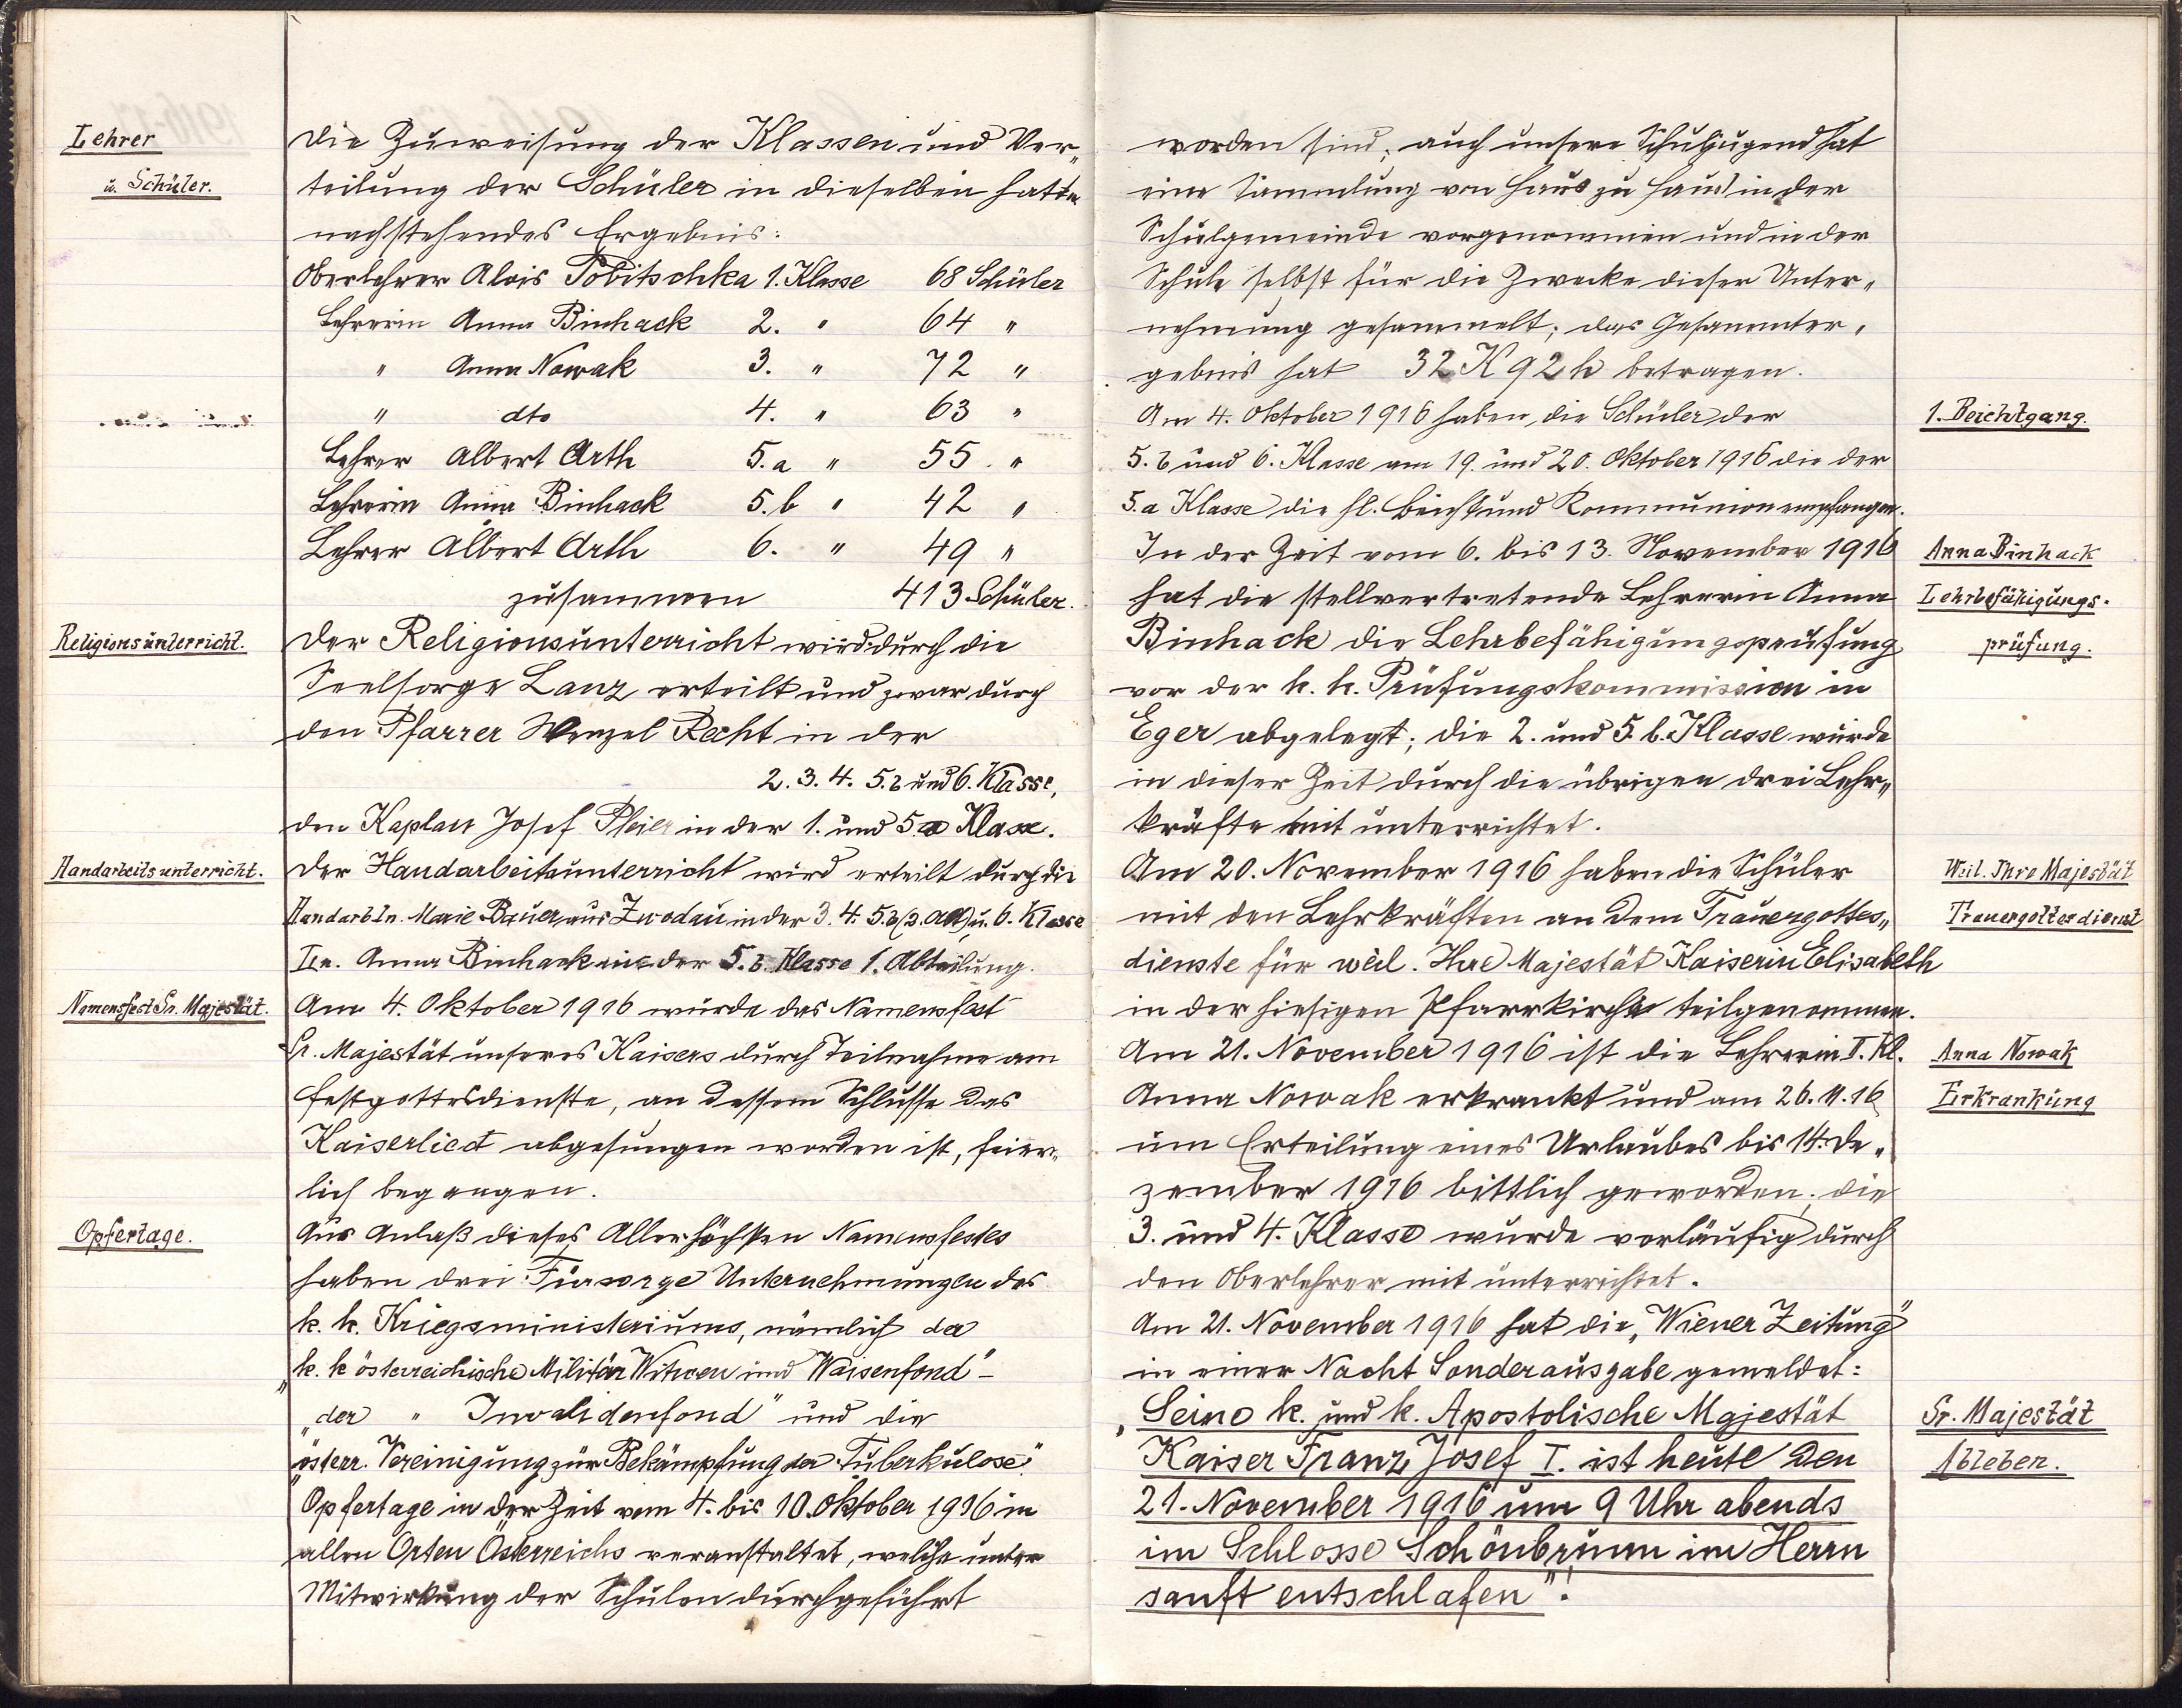 Lehrer
u. Schüler.
Die Zuweisung der Klassen und Ver„
teilung der Schüler in dieselben hatte
nachstehendes Ergebnis:
Oberlehrer Alois Tobitschka 1. Klasse 68 Schüler
Lehrerin Anna Binhack 2. " 64 "
" Anna Nowak 3. " 72 "
" dto 4. " 63 "
Lehrer Albert Arth 5. a " 55 "
Lehrerin Anna Binhack 5. b " 42 "
Lehrer Albert Arth 6. " 49 "
zusammen 413 Schüler.
Religionsunterricht.
Der Religionsunterricht wird durch die
Seelsorge Lanz erteilt und zwar durch
den Pfarrer Wenzel Recht in der
2. 3. 4. 5. b und 6. Klasse,
den Kaplan Josef Pleier in der 1. und 5. a Klasse.
Handarbeitsunterricht.
Der Handarbeitsunterricht wird erteilt durch die
Handarb. ln. Marie Bauer aus Zwodau in der 3. 4. 5. b (2. Abt) u. 6. Klasse
Ln. Anna Binhack in der 5. b. Klasse 1. Abteilung.
Namensfest Sr. Majestät.
Am 4. Oktober 1916 wurde das Namensfest
Sr. Majestät unseres Kaisers durch Teilnahme am
Festgottesdienste, an dessem Schlusse das
Kaiserlied abgesungen worden ist, feier„
lich begangen.
Opfertage.
Aus Anlaß dieses Allerhöchsten Namensfestes
haben drei Fürsorge Unternehmungen des
k. k. Kriegsministeriums, nämlich der
„k. k österreichische Militär Witwen und Waisenfond" –
„der " Invalidenfond" und die
„österr. Vereinigung zur Bekämpfung der Tuberkulose"
Opfertage in der Zeit vom 4. bis 10. Oktober 1916 in
allen Orten Österreichs veranstaltet, welche unter
Mitwirkung der Schulen durchgeführt
worden sind; auch unsere Schuljugend hat
eine Sammlung von Haus zu Haus in der
Schulgemeinde vorgenommen und in der
Schule selbst für die Zwecke dieser Unter„
nehmung gesammelt; das Gesammter„
gebnis hat 32 K 92 h betragen.
1. Beichtgang.
Am 4. Oktober 1916 haben die Schüler der
5. b und 6. Klasse am 19. und 20. Oktober 1916 die der
5. a Klasse die hl. Beicht und Kommunion empfangen.
Anna Binhack
Lehrbefähigungs-
prüfung.
In der Zeit vom 6. bis 13. November 1916
hat die stellvertretende Lehrerin Anna
Binhack die Lehrbefähigungsprüfung
vor der k. k. Prüfungskommission in
Eger abgelegt; die 2. und 5. b. Klasse wurde
in dieser Zeit durch die übrigen drei Lehr„
kräfte mit unterrichtet.
Weil. Ihre Majestät
Trauergottesdienst
Am 20. November 1916 haben die Schüler
mit den Lehrkräften an dem Trauergottes„
dienste für weil. Ihre Majestät Kaiserin Elisabeth
in der hiesigen Pfarrkirche teilgenommen.
Anna Nowak
Erkrankung
Am 21. November 1916 ist die Lehrerin I. Kl.
Anna Nowak erkrankt und am 26. 11. 16
um Erteilung eines Urlaubes bis 14. De„
zember 1916 bittlich geworden; die
3. und 4. Klasse wurde vorläufig durch
den Oberlehrer mit unterrichtet.
Am 21. November 1916 hat die „Wiener Zeitung"
in einer Nacht Sonderausgabe gemeldet:
Sr. Majestät
Ableben.
„Seine k. und k. Apostolische Majestät
Kaiser Franz Josef I. ist heute den
21. November 1916 um 9 Uhr abends
im Schlosse Schönbrunn im Herrn
sanft entschlafen"!